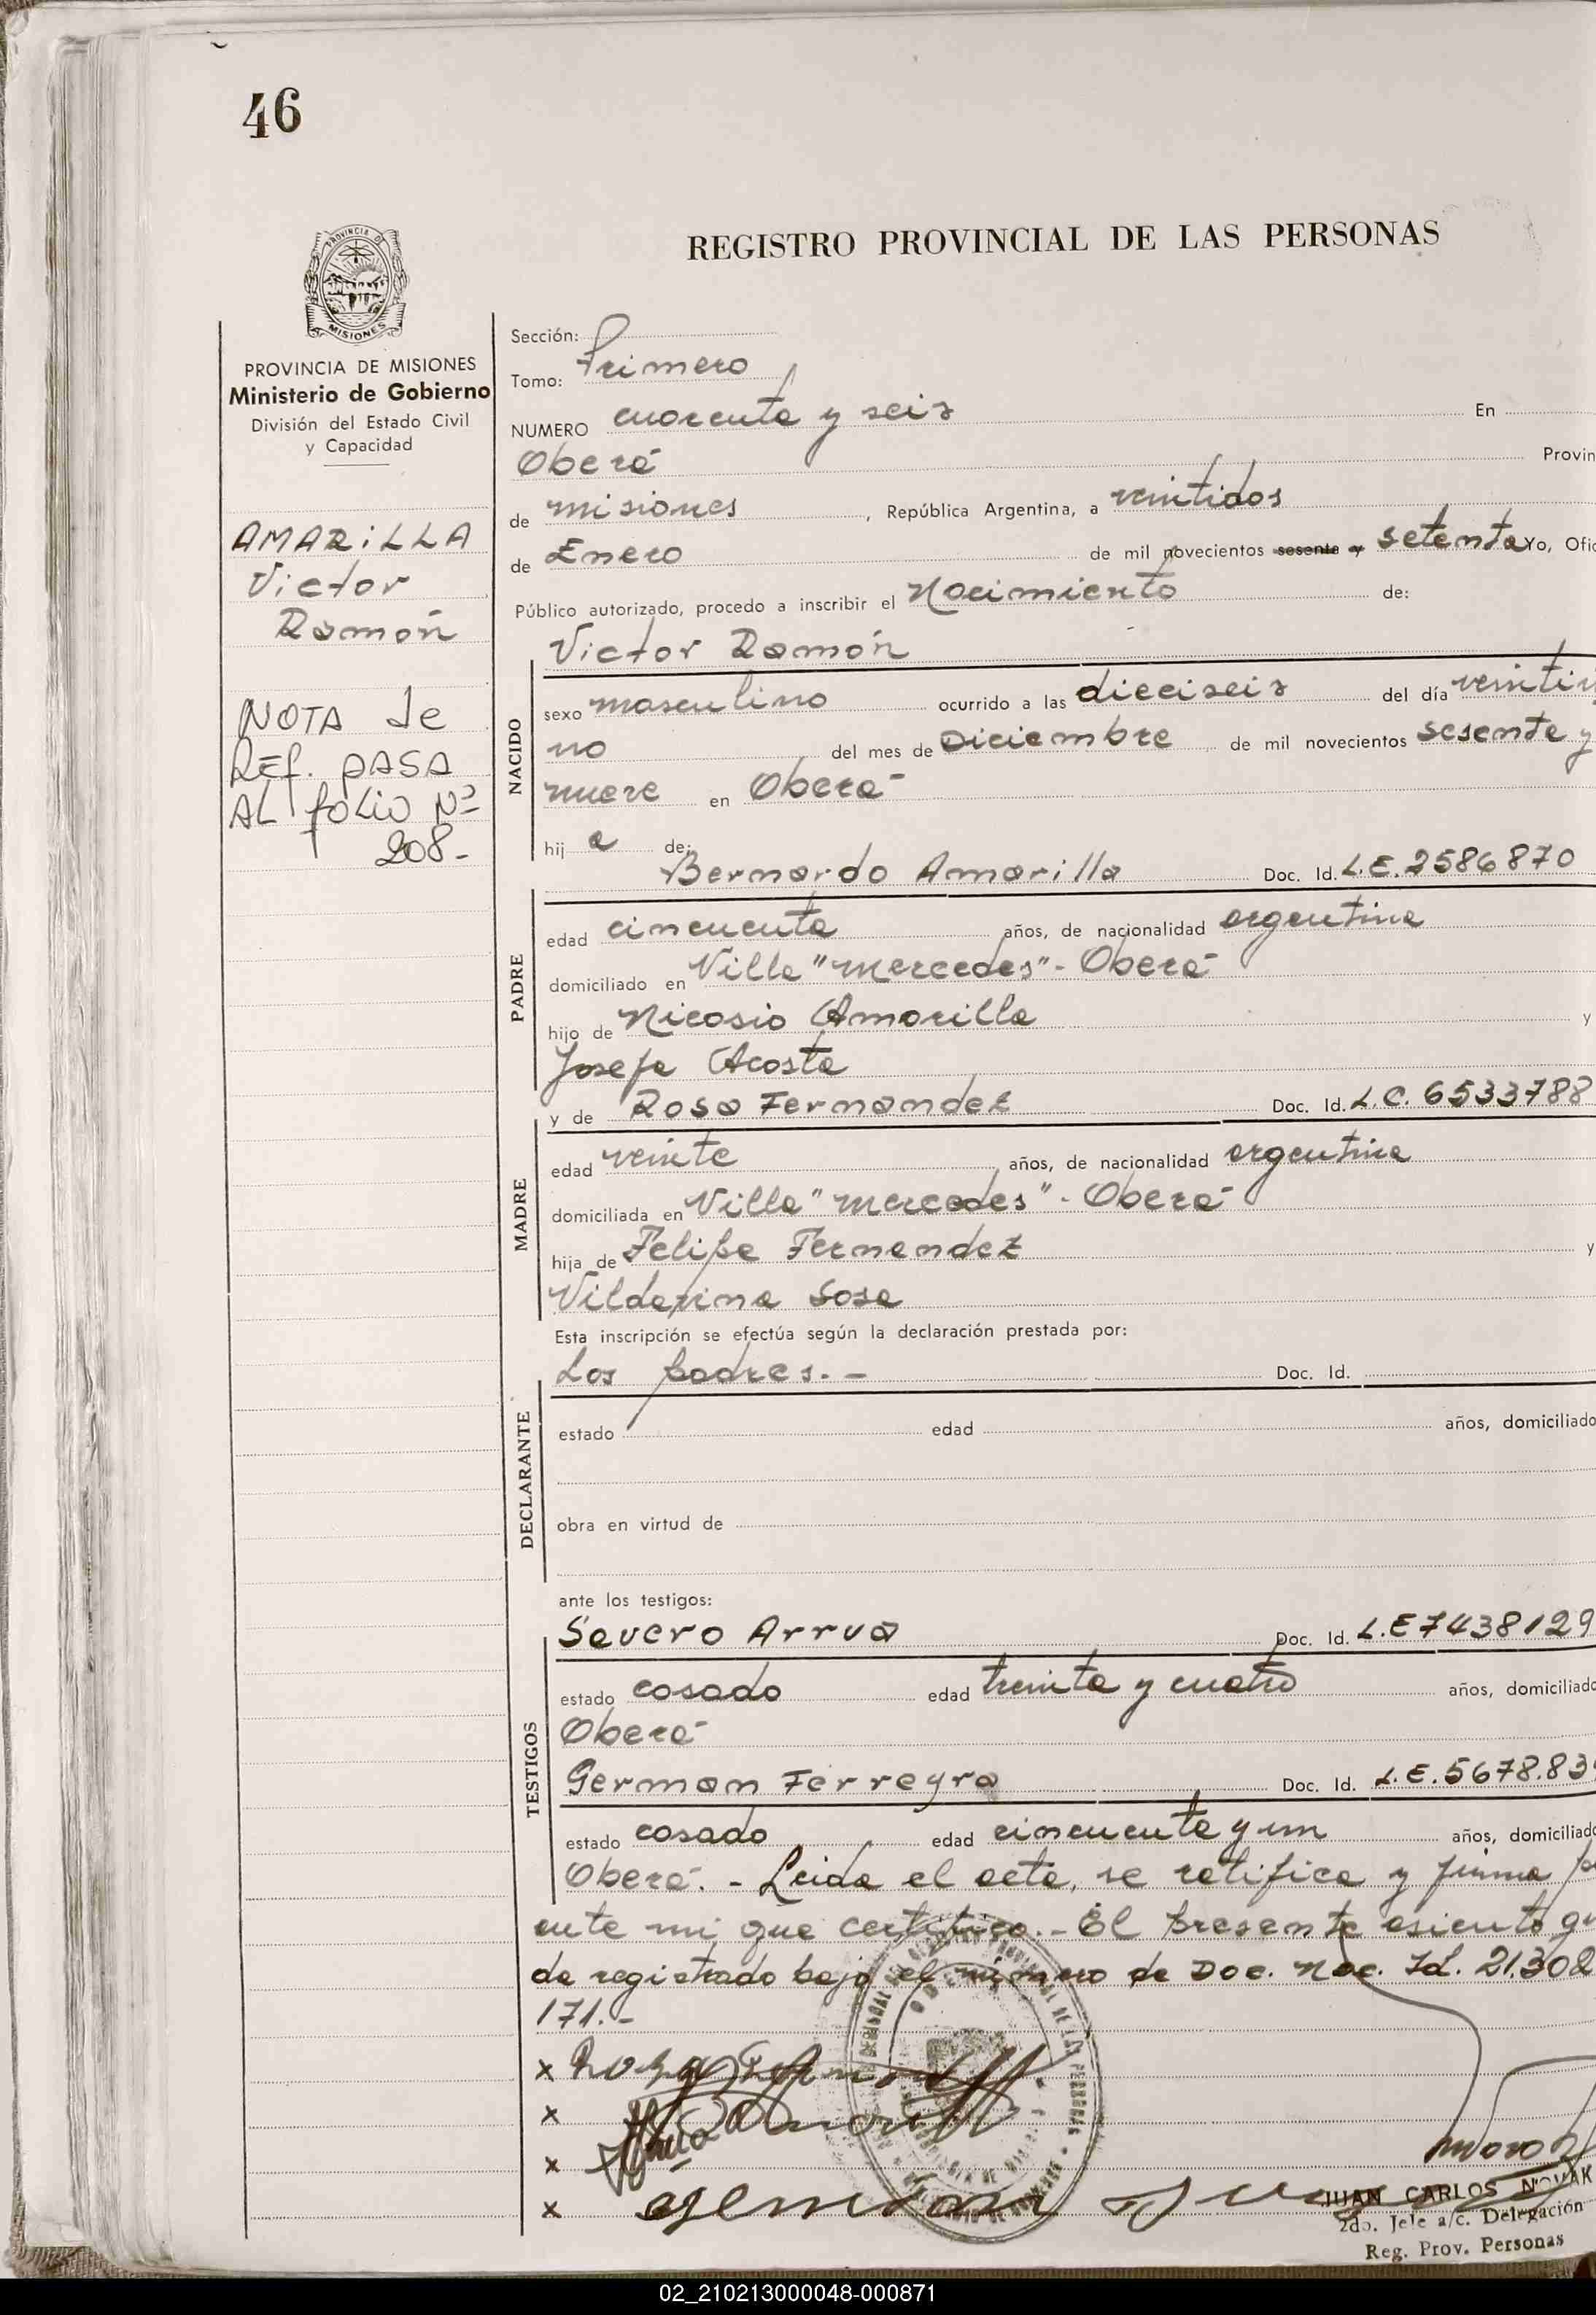 46
REGISTRO PROVINCIAL DE LAS PERSONAS
PROVINCIA DE
MISIONES
PROVINCIA DE MISIONES
Ministerio de Gobierno
División del Estado Civil
y Capacidad
AMARiLLA
Victor
Ramón
NOTA de
REf. PASA
AL fOLiO Nº
208-
Sección:
Tomo: Primero
NUMERO cuarenta y seis En
Oberá Provin
de misiones, República Argentina, a veintidos
de Enero de mil novecientos sesenta y setenta Yo, Ofic
Público autorizado, procedo a inscribir el Nacimiento de:
Victor Ramón
NACIDO
sexo masculino ocurrido a las dieciseis del día veintiu
no del mes de Diciembre de mil novecientos sesenta y
nueve en Oberá
hij o de:
Bernardo Amarilla Doc. Id. L.E. 2586870
PADRE
edad cincuenta años, de nacionalidad argentina
domiciliado en Villa "Mercedes" - Oberá
hijo de Nicasio Amarilla y
Josefa Acosta
y de Rosa Fernandez Doc. Id. L.C. 6533788
MADRE
edad veinte años, de nacionalidad argentina
domiciliada en Villa "Mercedes" - Oberá
hija de Felipe Fernandez y
Sosa
Esta inscripción se efectúa según la declaración prestada por:
Los padres.- Doc. Id.
DECLARANTE
estado edad años, domiciliado
obra en virtud de
ante los testigos:
Severo Arrua Doc. Id. L.E 7438129
TESTIGOS
estado casado edad treinta y cuatro años, domiciliado
Oberá
German Ferreyra Doc. Id. L.E. 5678.83
estado casado edad cincuenta y un años, domiciliado
Oberá. - Leida el acta, se ratifica y firma
ante mi que certifico.- El presente asiento qu
da registrado bajo el número de Doc. Nac. Id. 21.302
171.-
x Rosa
x
x
x
JUAN CARLOS NOVAK
2do. Jefe a/c. Delegación
Reg. Prov. Personas
02_210213000048-000871